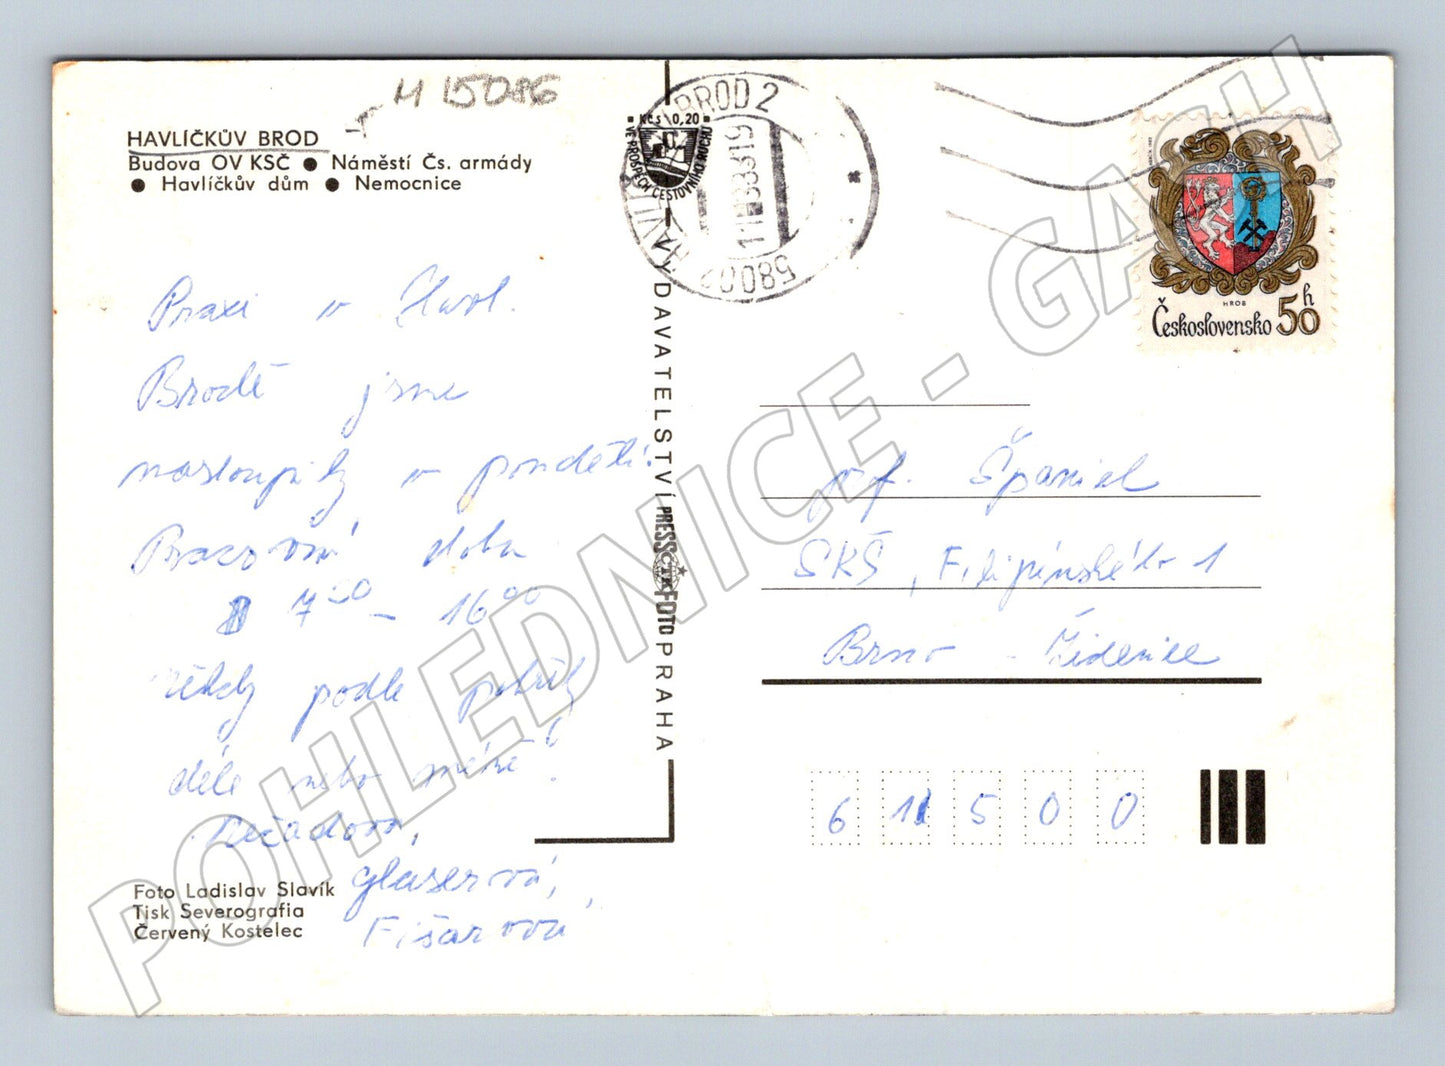 M 15086
HAVLÍČKŮV BROD
Budova OV KSČ ● Náměstí Čs. armády
● Havlíčkův dům ● Nemocnice
Praxi v Havl.
Brodě jsme
nastoupily v pondělí.
Pracovní doba
7⁰⁰ – 16⁰⁰
někdy podle potřeby
déle nebo méně!
Glaserová,
Fišarová
Foto Ladislav Slavík
Tisk Severografia
Červený Kostelec
Kčs 0,20
VE PROSPĚCH CESTOVNÍHO RUCHU
VYDAVATELSTVÍ PRESSFOTO PRAHA
ČTK
BROD 2
58002
HROB
Československo 50 h
prof. Španiel
SKŠ, Filipínského 1
Brno - Židenice
6 1 5 0 0
POHLEDNICE - GASH